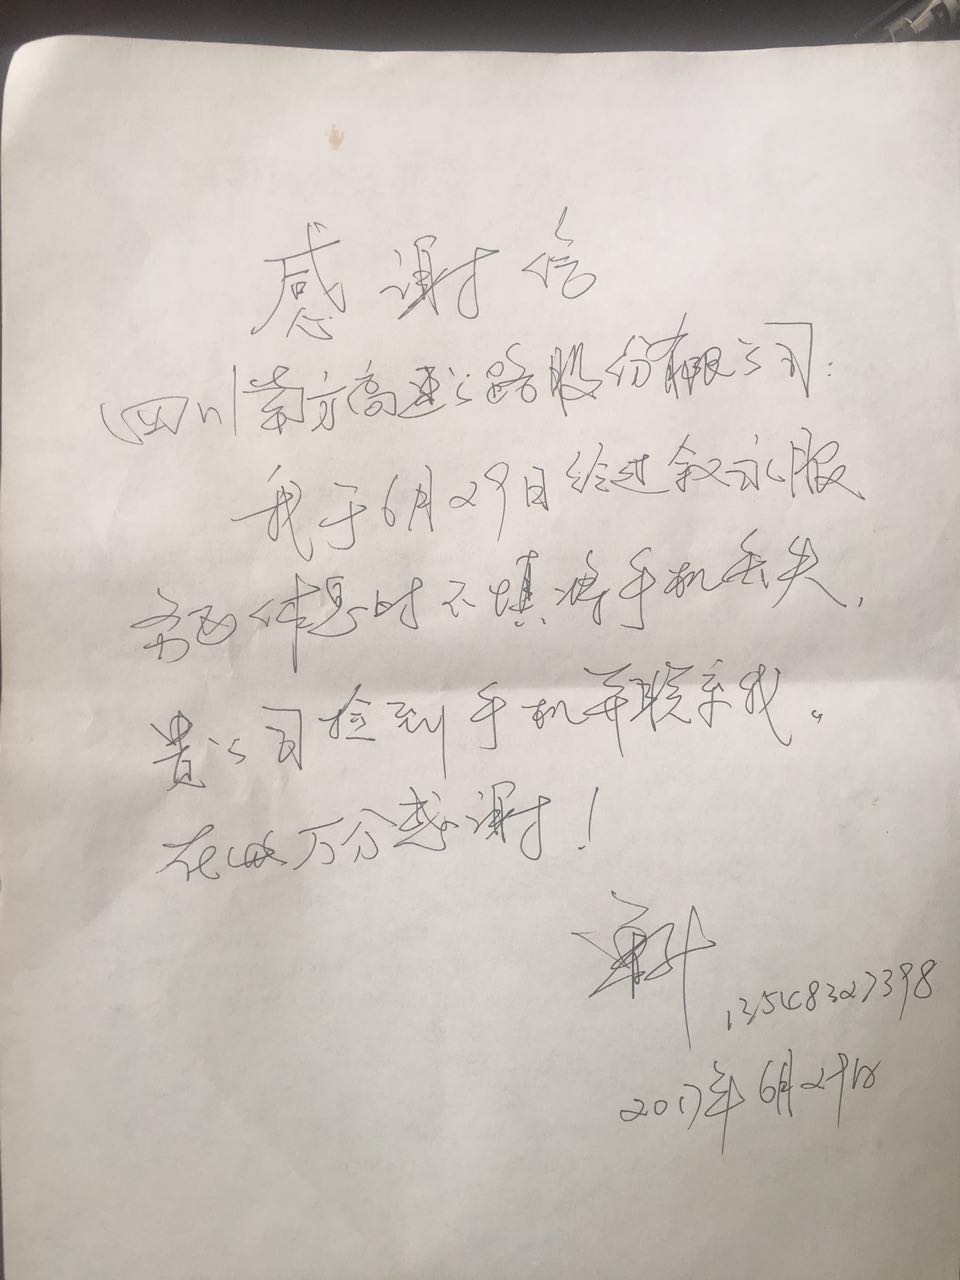 感谢信
四川南方高速公路股份有限公司：
我于6月29日经过叙永服
务区休息时不慎将手机丢失，
贵公司捡到手机并联系我。
在此万分感谢！
13548327398
2017年6月29日